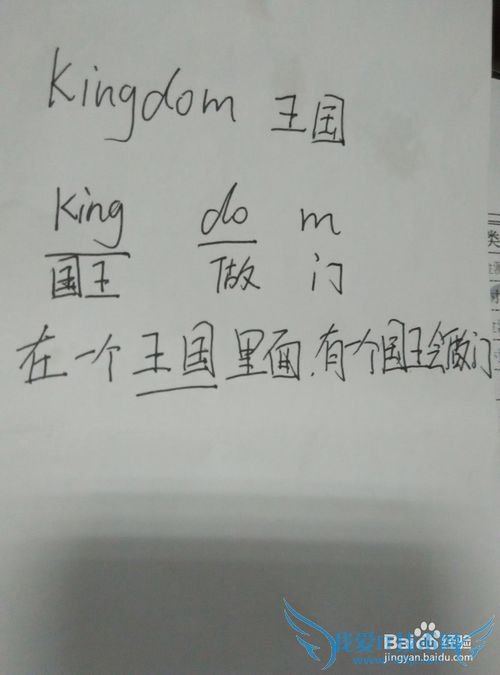 Kingdom 王国
King do m
国王 做 门
在一个王国里面,有一个国王会做门
类
Baidu 经验
jingyan.baidu.com